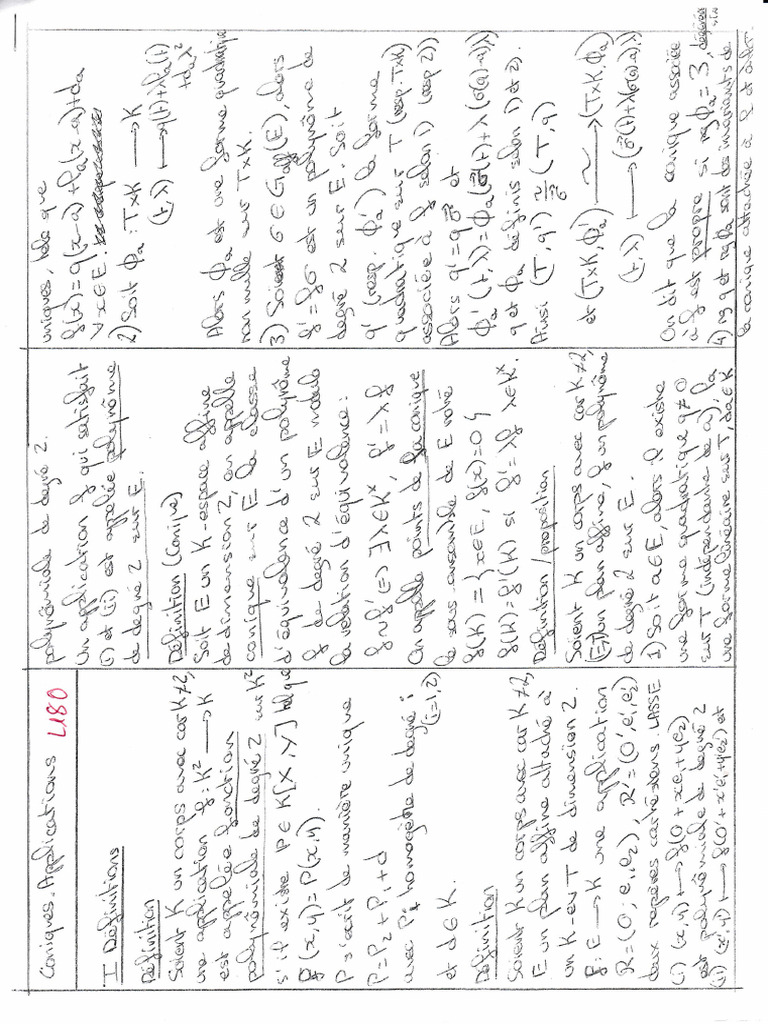 Coniques. Applications L180
I Définitions
Définition
Soient K un corps avec car K ≠ 2,
une application f : K² → K
est appelée fonction
polynômiale de degré 2 sur K²
s'il existe P ∈ K[X,Y] tel que
f(x,y) = P(x,y).
P s'écrit de manière unique
P = P₂ + P₁ + d
avec Pᵢ homogène de degré i
(i=1,2)
et d ∈ K.
Définition
Soient K un corps avec car K ≠ 2,
E un plan affine attaché à
un K-ev T de dimension 2.
f : E → K une application
R = (O; e₁, e₂), R' = (O'; e'₁, e'₂)
deux repères cartésiens LASSE
(i) (x,y) ↦ f(O + xe₁ + ye₂)
est polynômiale de degré 2
(ii) (x',y') ↦ f(O' + x'e'₁ + y'e'₂) est
polynômiale de degré 2.
Un application f qui satisfait
(i) et (ii) est appelée polynôme
de degré 2 sur E.
Définition (Conique)
Soit E un K-espace affine
de dimension 2, on appelle
conique sur E la classe
d'équivalence d'un polynôme
f de degré 2 sur E modulo
la relation d'équivalence :
f ~ f' ⇔ ∃ λ ∈ K*, f' = λf
On appelle points de la conique
le sous-ensemble de E noté
f(K) = {x ∈ E, f(x) = 0}
f(K) = f'(K) si f' = λf λ ∈ K*.
Définition/proposition
Soient K un corps avec car K ≠ 2,
(E,T) un plan affine, f un polynôme
de degré 2 sur E.
1) Soit a ∈ E, alors il existe
une forme quadratique q ≠ 0
sur T (indépendante de a), la
une forme linéaire sur T, da ∈ K
uniques, tels que
f(x) = q(x-a) + la(x-a) + da
∀ x ∈ E.
2) Soit φa : T×K → K
(t,λ) ↦ q(t) + λla(t)
+ daλ²
Alors φa est une forme quadratique
non nulle sur T×K.
3) Soient σ ∈ Gaff(E), alors
f' = fσ est un polynôme de
degré 2 sur E. Soit
q' (resp. φ'a) la forme
quadratique sur T (resp. T×K)
associée à f' selon 1) (resp 2))
Alors q' = q σ⃗ et
φ'a(t,λ) = φa(σ⃗(t) + λ(σ(a)-a), λ)
q et φa définis selon 1) et 2).
Ainsi (T,q') ~ (T,q)
σ⃗
et (T×K, φ'a) ~→ (T×K, φa)
(t,λ) ↦ (σ⃗(t) + λ(σ(a)-a), λ)
On dit que la conique associée
à f est propre si rg φa = 3, dégénérée
sinon
4) rg q et rg φa sont des invariants de
la conique attachée à f